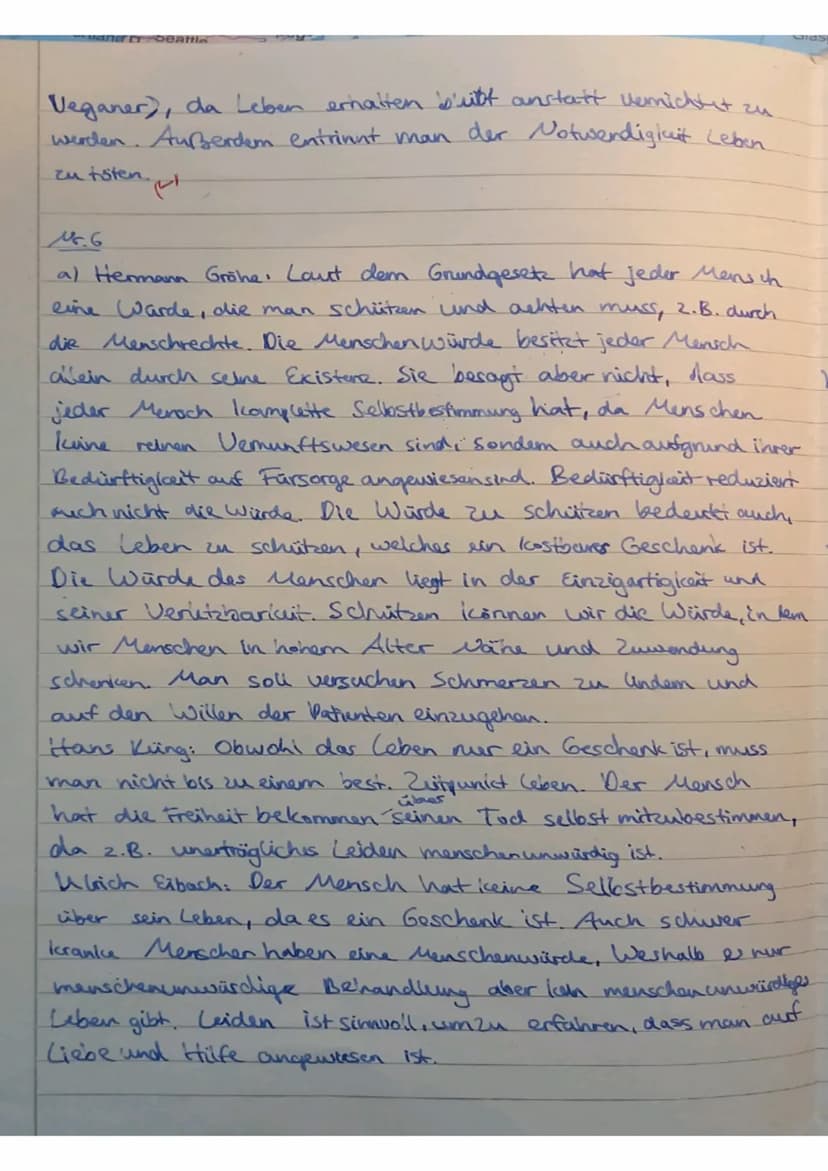 Veganer), da Leben erhalten bleibt anstatt vernichtet zu
werden. Außerdem entrinnt man der Notwendigkeit Leben
zu töten.
Nr. 6
a) Hermann Gröhe: Laut dem Grundgesetz hat jeder Mensch
eine Würde, die man schützen und achten muss, z.B. durch
die Menschrechte. Die Menschenwürde besitzt jeder Mensch
allein durch seine Existenz. Sie besagt aber nicht, dass
jeder Mensch komplette Selbstbestimmung hat, da Menschen
keine reinen Vernunftswesen sind, sondern auch aufgrund ihrer
Bedürftigkeit auf Fürsorge angewiesen sind. Bedürftigkeit reduziert
auch nicht die Würde. Die Würde zu schützen bedeutet auch,
das Leben zu schützen, welches ein kostbares Geschenk ist.
Die Würde des Menschen liegt in der Einzigartigkeit und
seiner Verletzbarkeit. Schützen können wir die Würde, in dem
wir Menschen in hohem Alter Nähe und Zuwendung
schenken. Man soll versuchen Schmerzen zu lindern und
auf den Willen der Patienten einzugehen.
Hans Küng: Obwohl das Leben nur ein Geschenk ist, muss
man nicht bis zu einem best. Zeitpunkt leben. Der Mensch
hat die Freiheit bekommen über seinen Tod selbst mitzubestimmen,
da z.B. unerträgliches Leiden menschenunwürdig ist.
Ulrich Eibach: Der Mensch hat keine Selbstbestimmung
über sein Leben, da es ein Geschenk ist. Auch schwer
kranke Menschen haben eine Menschenwürde, Weshalb es nur
menschenunwürdige Behandlung aber kein menschenunwürdiges
Leben gibt. Leiden ist sinnvoll, um zu erfahren, dass man auf
Liebe und Hilfe angewiesen ist.